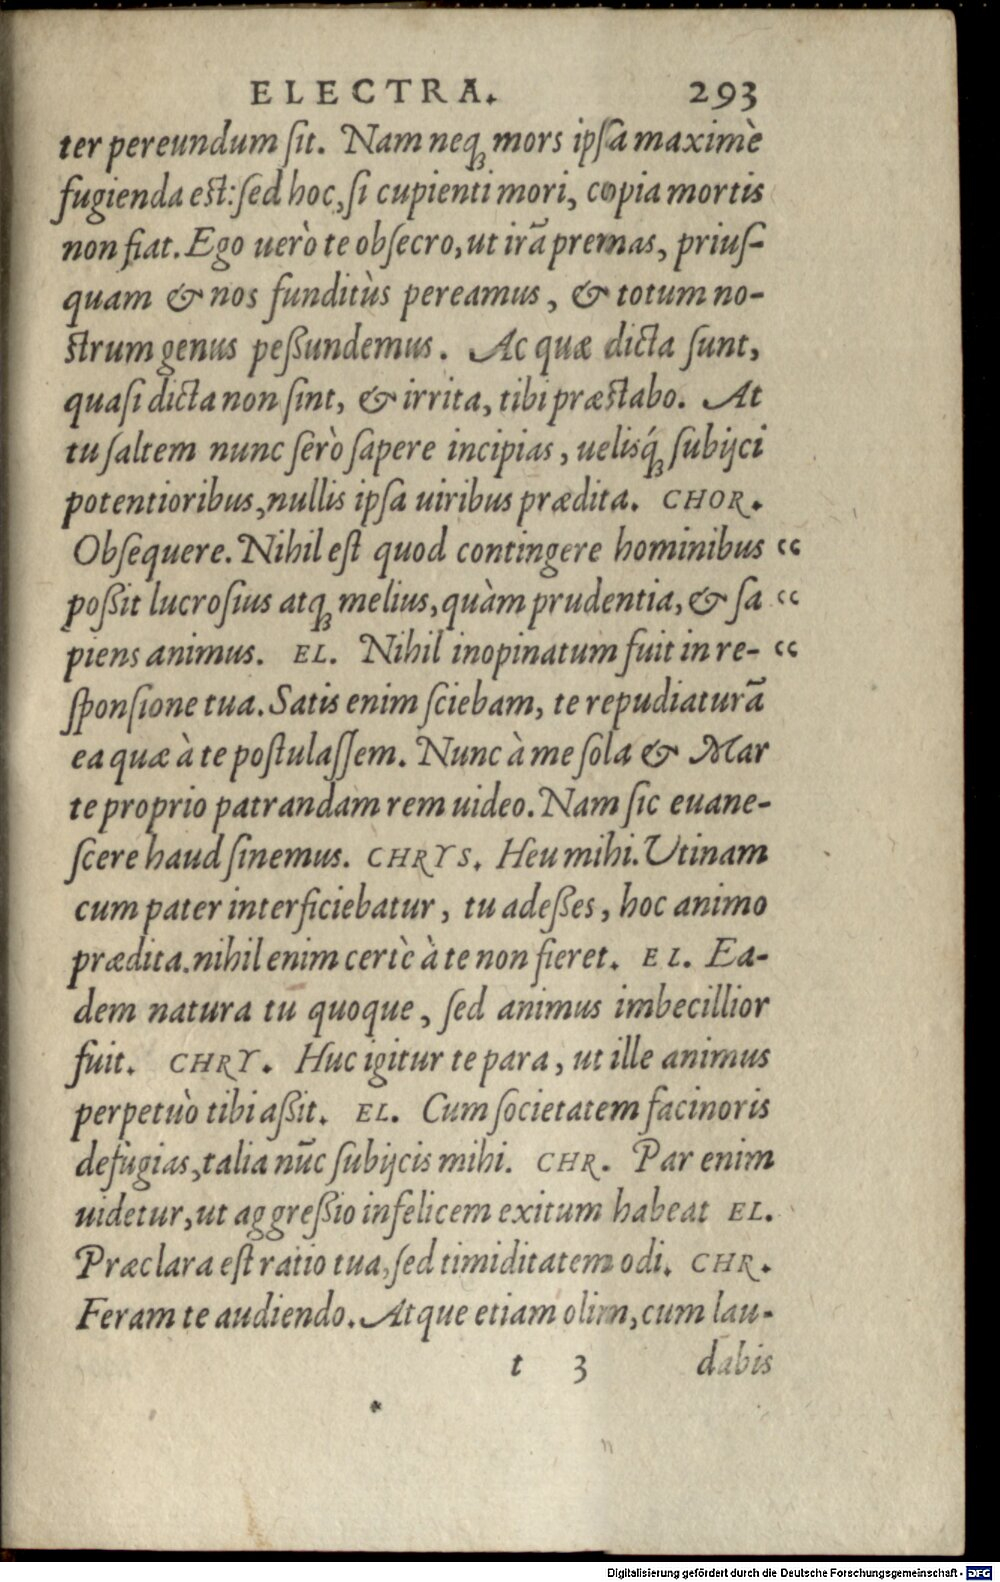 ELECTRA. 293
ter pereundum ſit. Nam neq; mors ipſa maximè
fugienda eſt: ſed hoc, ſi cupienti mori, copia mortis
non fiat. Ego uerò te obſecro, ut irã premas, priuſ-
quam & nos funditùs pereamus, & totum no-
ſtrum genus peßundemus. Ac quæ dicta ſunt,
quaſi dicta non ſint, & irrita, tibi præſtabo. At
tu ſaltem nunc ſerò ſapere incipias, uelisq́; ſubijci
potentioribus, nullis ipſa uiribus prædita. CHOR.
Obſequere. Nihil eſt quod contingere hominibus “
poßit lucroſius atq; melius, quàm prudentia, & ſa “
piens animus. EL. Nihil inopinatum fuit in re- “
ſponſione tua. Satis enim ſciebam, te repudiaturã
ea quæ à te poſtulaſſem. Nunc à me ſola & Mar
te proprio patrandam rem uideo. Nam ſic euane-
ſcere haud ſinemus. CHRYS. Heu mihi. Utinam
cum pater interficiebatur, tu adeßes, hoc animo
prædita. nihil enim certè à te non fieret. EL. Ea-
dem natura tu quoque, ſed animus imbecillior
fuit. CHRY. Huc igitur te para, ut ille animus
perpetuò tibi aßit. EL. Cum ſocietatem facinoris
defugias, talia nũc ſubijcis mihi. CHR. Par enim
uidetur, ut aggreßio infelicem exitum habeat EL.
Præclara eſt ratio tua, ſed timiditatem odi. CHR.
Feram te audiendo. Atque etiam olim, cum lau-
t 3 dabis
Digitalisierung gefördert durch die Deutsche Forschungsgemeinschaft - DFG